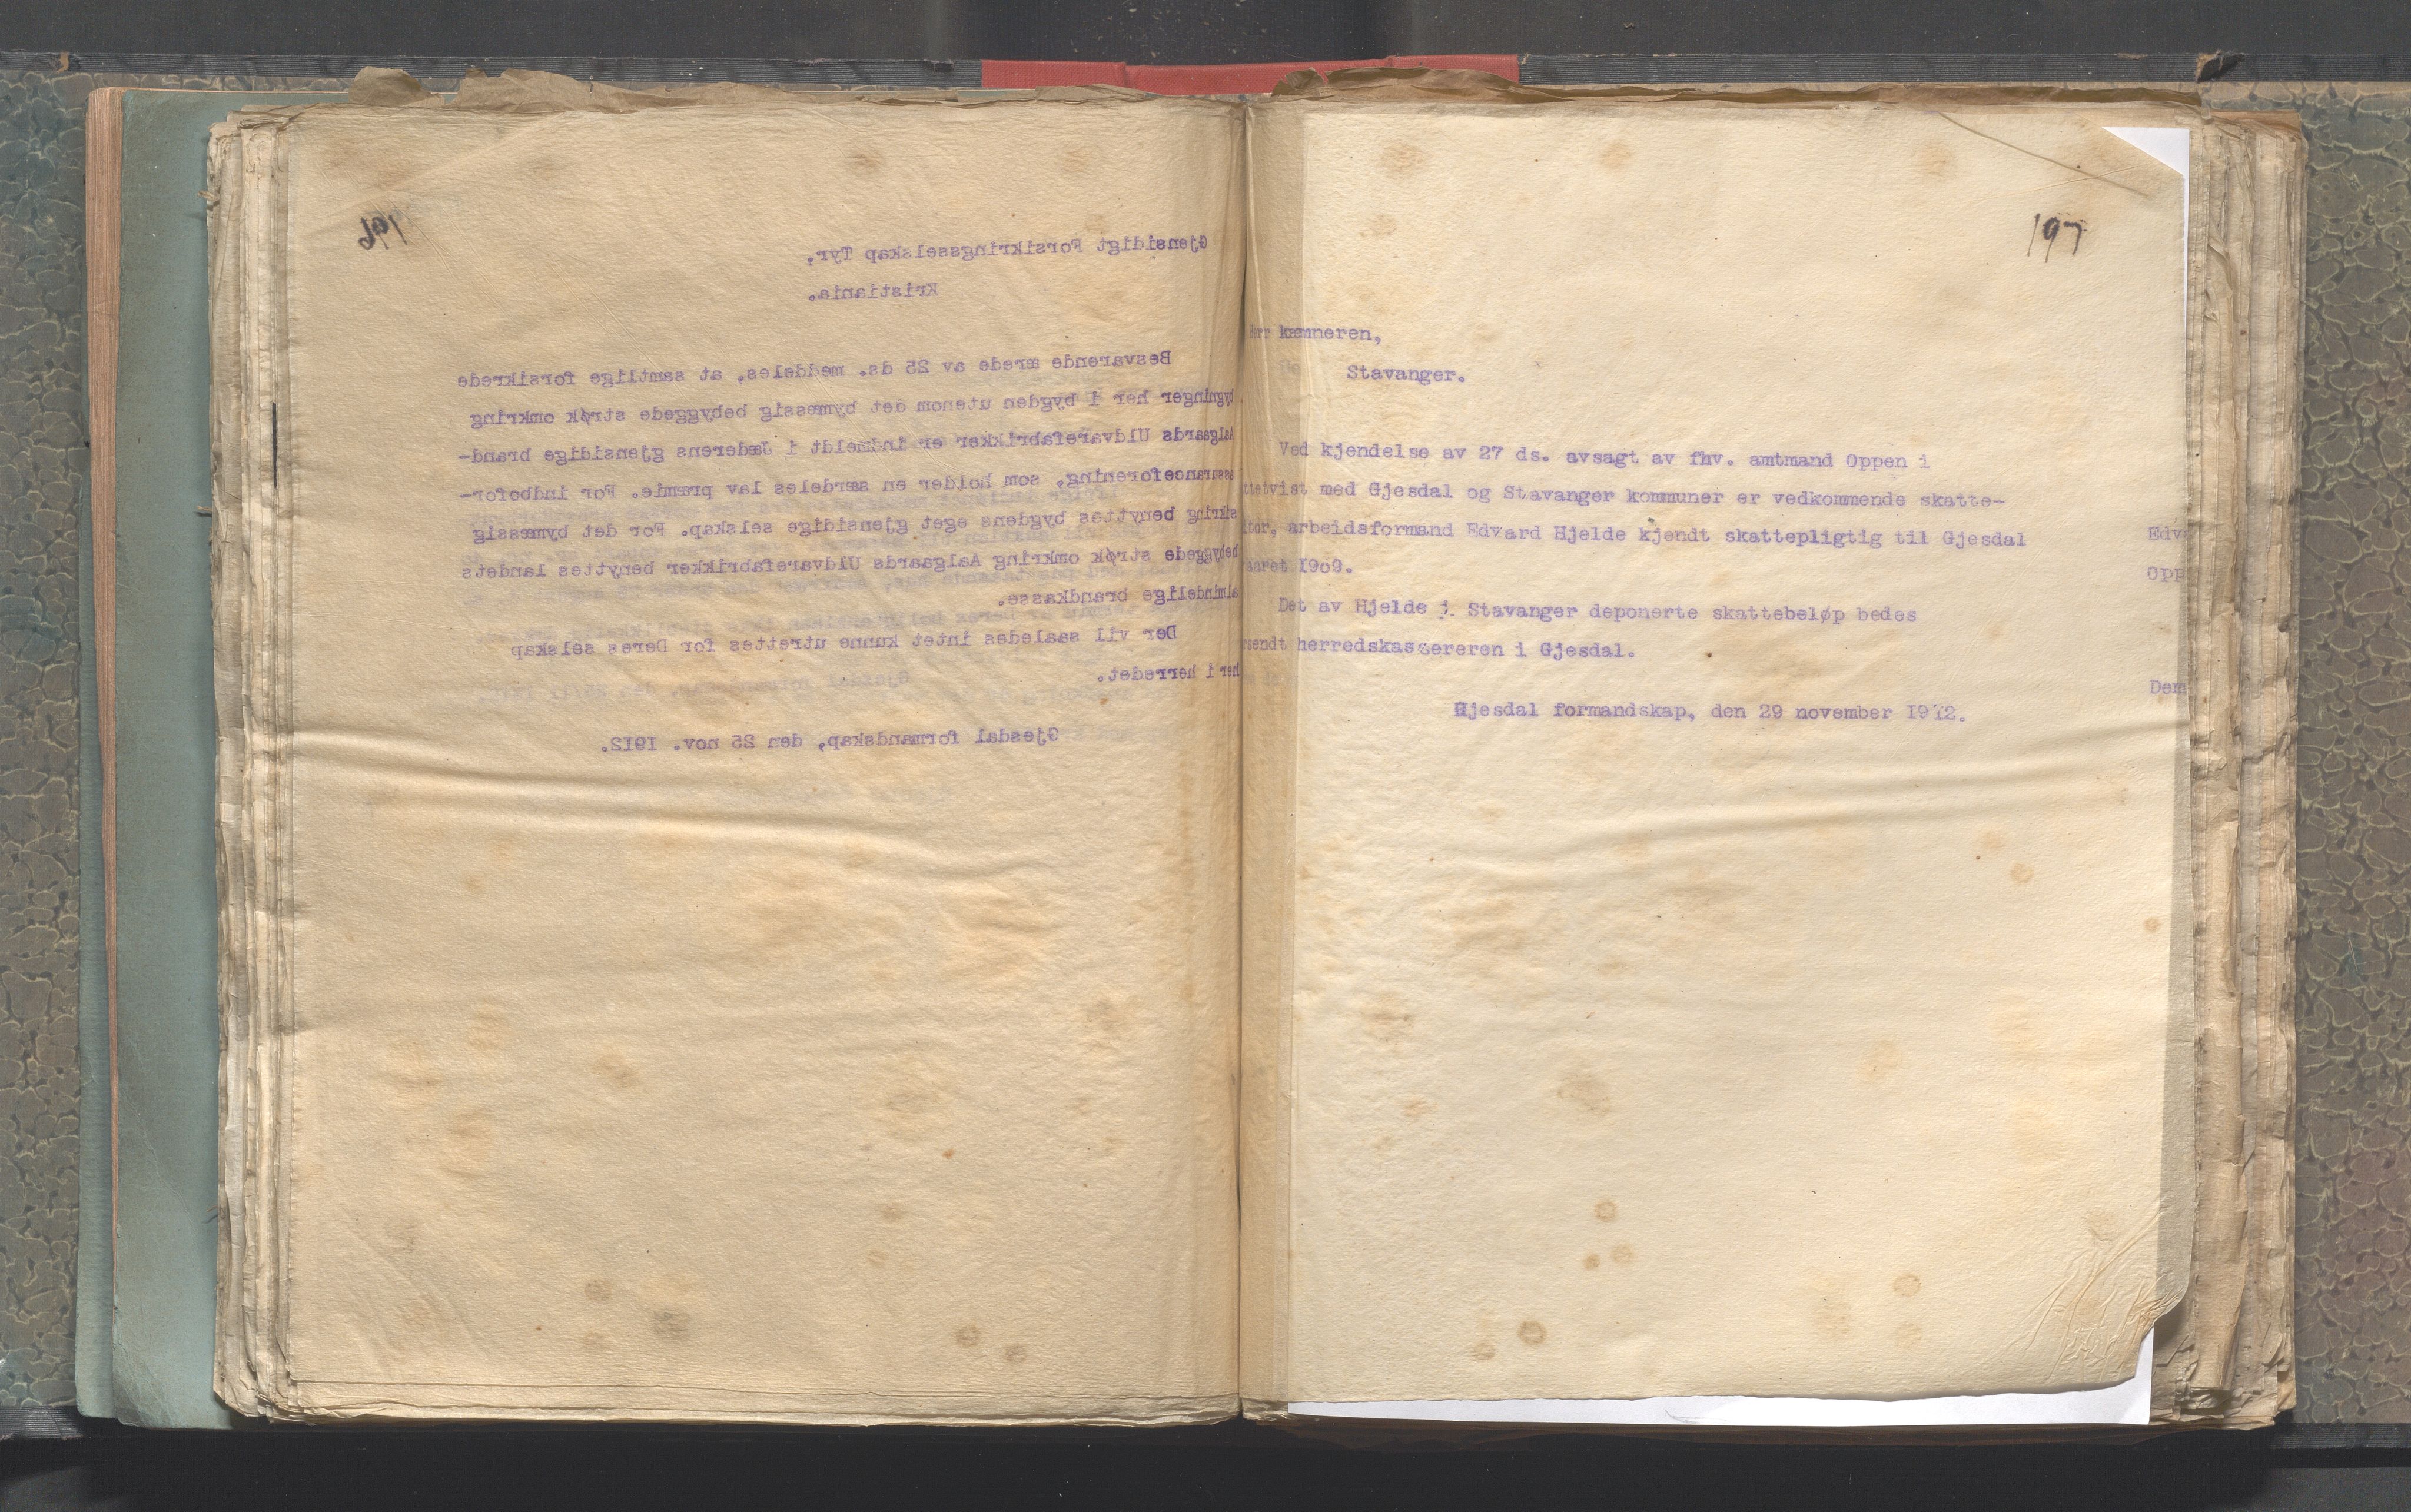 196
Gjensidigt Forsikringsselskap Tyr,
Kristiania.
Besvarende ærede av 25 ds. meddeles, at samtlige forsikrede
bygninger her i bygden utenom det bymæssig bebyggede strøk omkring
Aalgaards Uldvarefabrikker er indmeldt i Jæderens gjensidige brand-
assuranceforening, som holder en særdeles lav præmie. For indbofor-
sikring benyttes bygdens eget gjensidige selskap. For det bymæssig
bebyggede strøk omkring Aalgaards Uldvarefabrikker benyttes landets
almindelige brandkasse.
Der vil saaledes intet kunne utrettes for Deres selskap
her i herredet.
Gjesdal formandskap, den 25 nov. 1912.
197
Herr kæmneren,
Stavanger.
Ved kjendelse av 27 ds. avsagt av fhv. amtmand Oppen i
ttetvist med Gjesdal og Stavanger kommuner er vedkommende skatte-
itor, arbeidsformand Edvard Hjelde kjendt skattepligtig til Gjesdal
aaret 1909.
Det av Hjelde i Stavanger deponerte skattebeløp bedes
sendt herredskassereren i Gjesdal.
Gjesdal formandskap, den 29 november 1912.
Edv
Opp
Dem